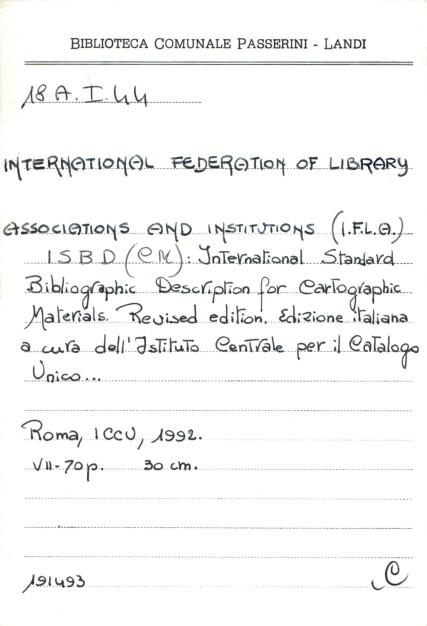 BIBLIOTECA COMUNALE PASSERINI - LANDI
18 A. I. 44
INTERNATIONAL FEDERATION OF LIBRARY
ASSOCIATIONS AND INSTITUTIONS (I.F.L.A.)
ISBD (CM): International Standard
Bibliographic Description for Cartographic
Materials. Revised edition. Edizione italiana
a cura dell'Istituto Centrale per il Catalogo
Unico...
Roma, ICCU, 1992.
VII-70 p. 30 cm.
191493 C